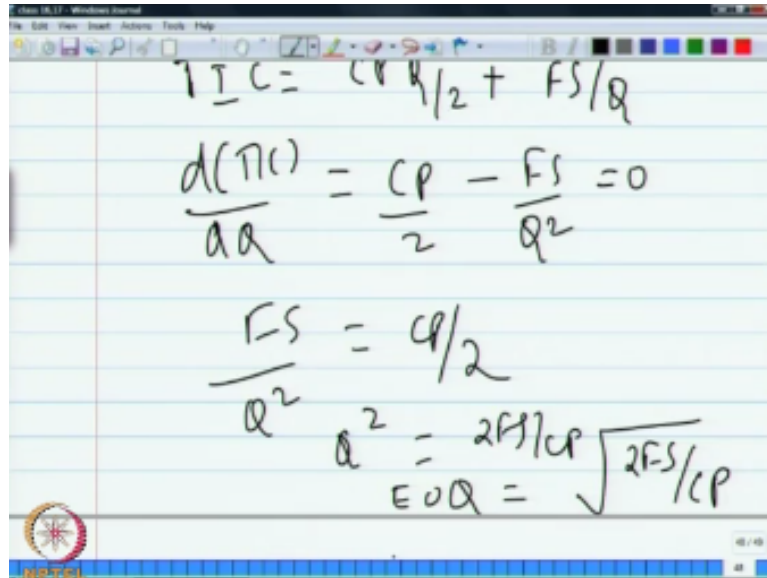 class 16,17 - Windows Journal
File Edit View Insert Actions Tools Help
TIC = CPQ/2 + FS/Q
d(TIC)/dQ = CP/2 - FS/Q² = 0
FS/Q² = CP/2
Q² = 2FS/CP
EOQ = √2FS/CP
NPTEL
48/48
48